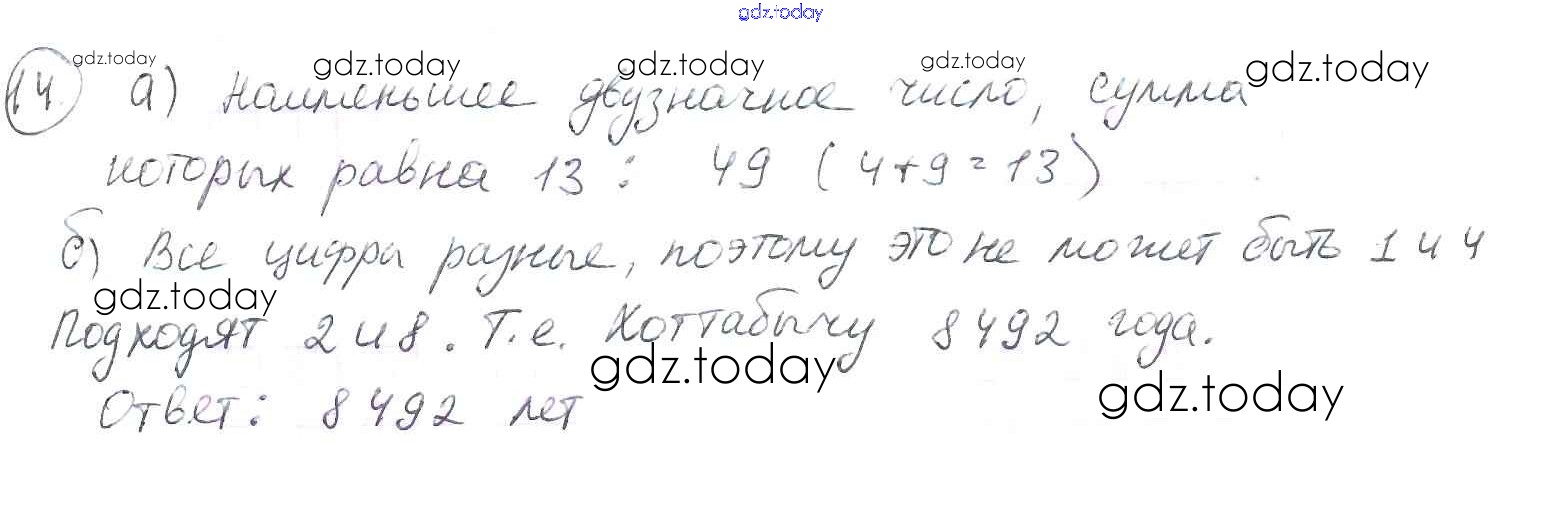 gdz.today
gdz.today gdz.today gdz.today gdz.today gdz.today
14 а) Наименьшее двузначное число, сумма
которых равна 13 : 49 (4+9=13)
б) Все цифры разные, поэтому это не может быть 1 и 4
gdz.today
Подходят 2 и 8. Т.е. Хоттабычу 8492 года.
gdz.today gdz.today
Ответ: 8492 лет